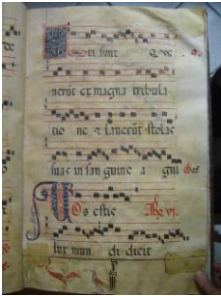 sti sunt
nerūt ex magna tribula
tio ne & lauerūt stolas
suas in san guine a gni
Os estis
lux mun di dicit